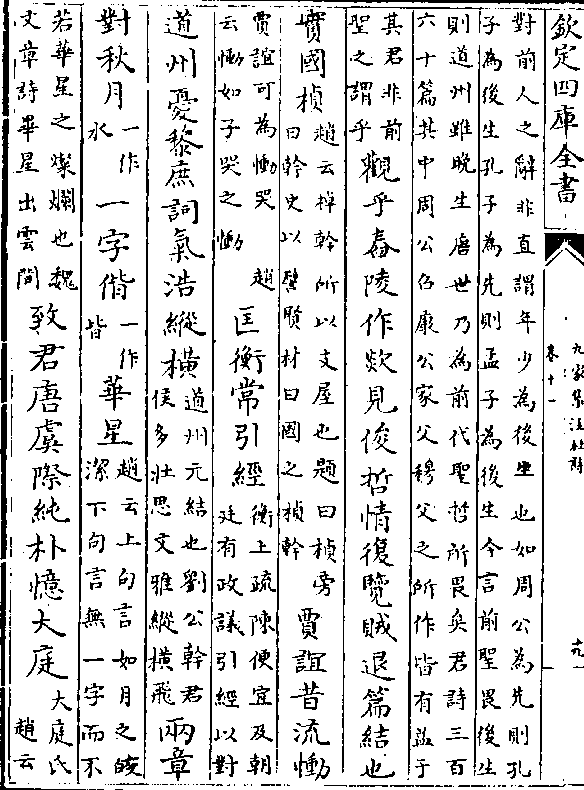 欽定四庫全書
九家集注杜詩
卷十一
十九
對前人之辭非直謂年少為後生也如周公為先則孔
子為後生孔子為先則孟子為後生今言前聖畏後生
則道州雖晚生唐世乃為前代聖哲所畏矣君詩三百
六十篇其中周公召康公家父穆父之所作皆有益于
其君非前
聖之謂乎
觀乎舂陵作欻見俊哲情復覽賊退篇結也
實國楨
趙云楨幹所以支屋也題曰楨旁
曰幹史以譬賢材曰國之楨幹
賈誼昔流慟
賈誼可為慟哭趙
云慟如子哭之慟
匡衡常引經
衡上疏陳便宜及朝
廷有政議引經以對
道州憂黎庶詞氣浩縱橫
道州元結也劉公幹君
侯多壯思文雅縱橫飛
兩章
對秋月
一作
水
一字偕
一作
皆
華星
趙云上句言如月之皎
潔下句言無一字而不
若華星之燦爛也魏
文章詩華星出雲間
致君唐虞際純朴憶大庭
大庭氏
趙云